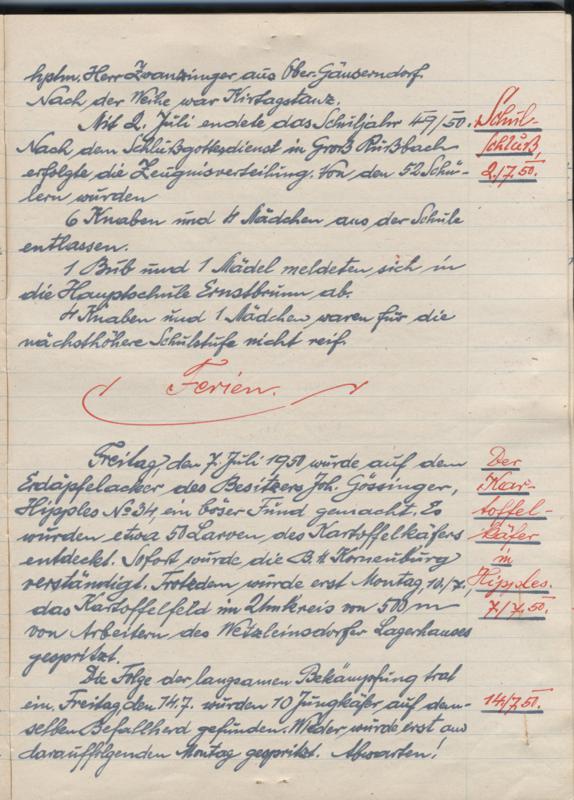 hptm. Herr Zwanzinger aus Ober-Gänserndorf.
Nach der Weihe war Kirtagstanz.
Mit 2. Juli endete das Schuljahr 49/50.
Schul-
schluß
2./7.50.
Nach dem Schlußgottesdienst in Groß Rußbach
erfolgte die Zeugnisverteilung. Von den 52 Schü-
lern wurden
6 Knaben und 4 Mädchen aus der Schule
entlassen.
1 Bub und 1 Mädel meldeten sich in
die Hauptschule Ernstbrunn ab.
4 Knaben und 1 Mädchen waren für die
nächsthöhere Schulstufe nicht reif.
Ferien.
Freitag, den 7. Juli 1950 wurde auf dem
Erdäpfelacker des Besitzers Joh. Gössinger,
Hipples No 34, ein böser Fund gemacht. Es
wurden etwa 50 Larven des Kartoffelkäfers
entdeckt. Sofort wurde die B.H. Korneuburg
verständigt. Trotzdem wurde erst Montag, 10./7.,
das Kartoffelfeld im Umkreis von 500 m
von Arbeitern des Wetzleinsdorfer Lagerhauses
gespritzt.
Der
Kar-
toffel-
käfer
in
Hipples.
7./7.50.
Die Folge der langsamen Bekämpfung trat
ein. Freitag den 14.7. wurden 10 Jungkäfer auf dem-
selben Befallherd gefunden. Wieder wurde erst am
darauffolgenden Montag gespritzt. Abwarten!
14/7.50.